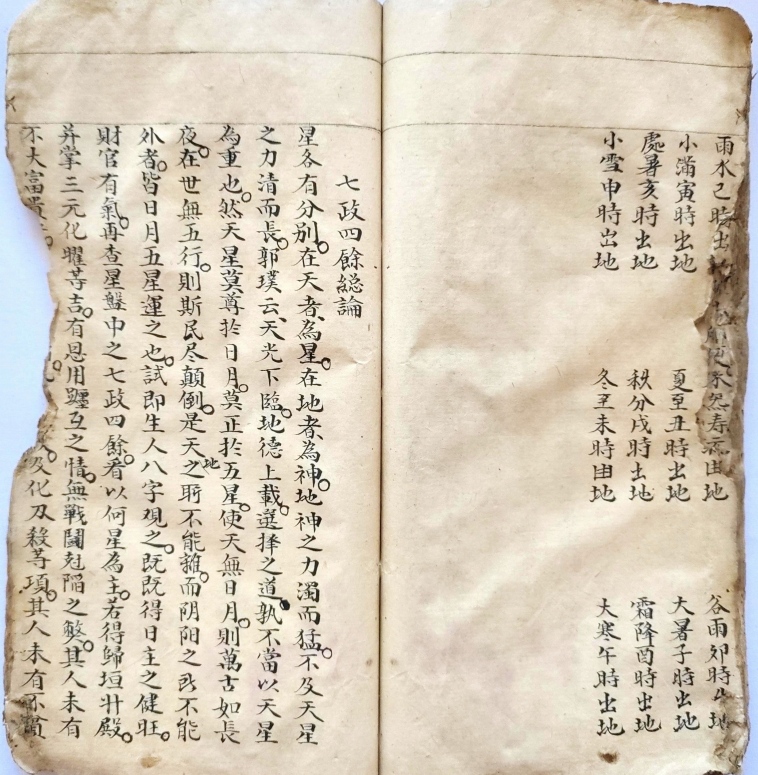 雨水已時出 春 由地 谷雨卯時 地
小滿寅時出地 夏至丑時出地 大暑子時出地
處暑亥時出地 秋分戌時出地 霜降酉時出地
小雪申時出地 冬至未時由地 大寒午時出地
七政四餘総論
星各有分別。在天者、為星。在地者、為神。地神之力濁而猛。不及天星
之力清而長。郭璞云、天光下臨。地德上載。選擇之道、孰不當以天星
為重也。然天星莫尊於日月。莫正於五星。使天無日月。則萬古如長
夜。在世無五行。則斯民尽顛倒。是天地之所不能離。而阴阳之所不能
外者。皆日月五星運之也。試即生人八字观之。既既得日主之健旺。
財官有氣。再查星盤中之七政四餘。看以何星為主。若得歸垣升殿。
并掌三元化曜等吉。有恩用躔互之情。無戰鬪尅陥之獘。其人未有
不大富貴 及化刃殺等項。其人未有不貧